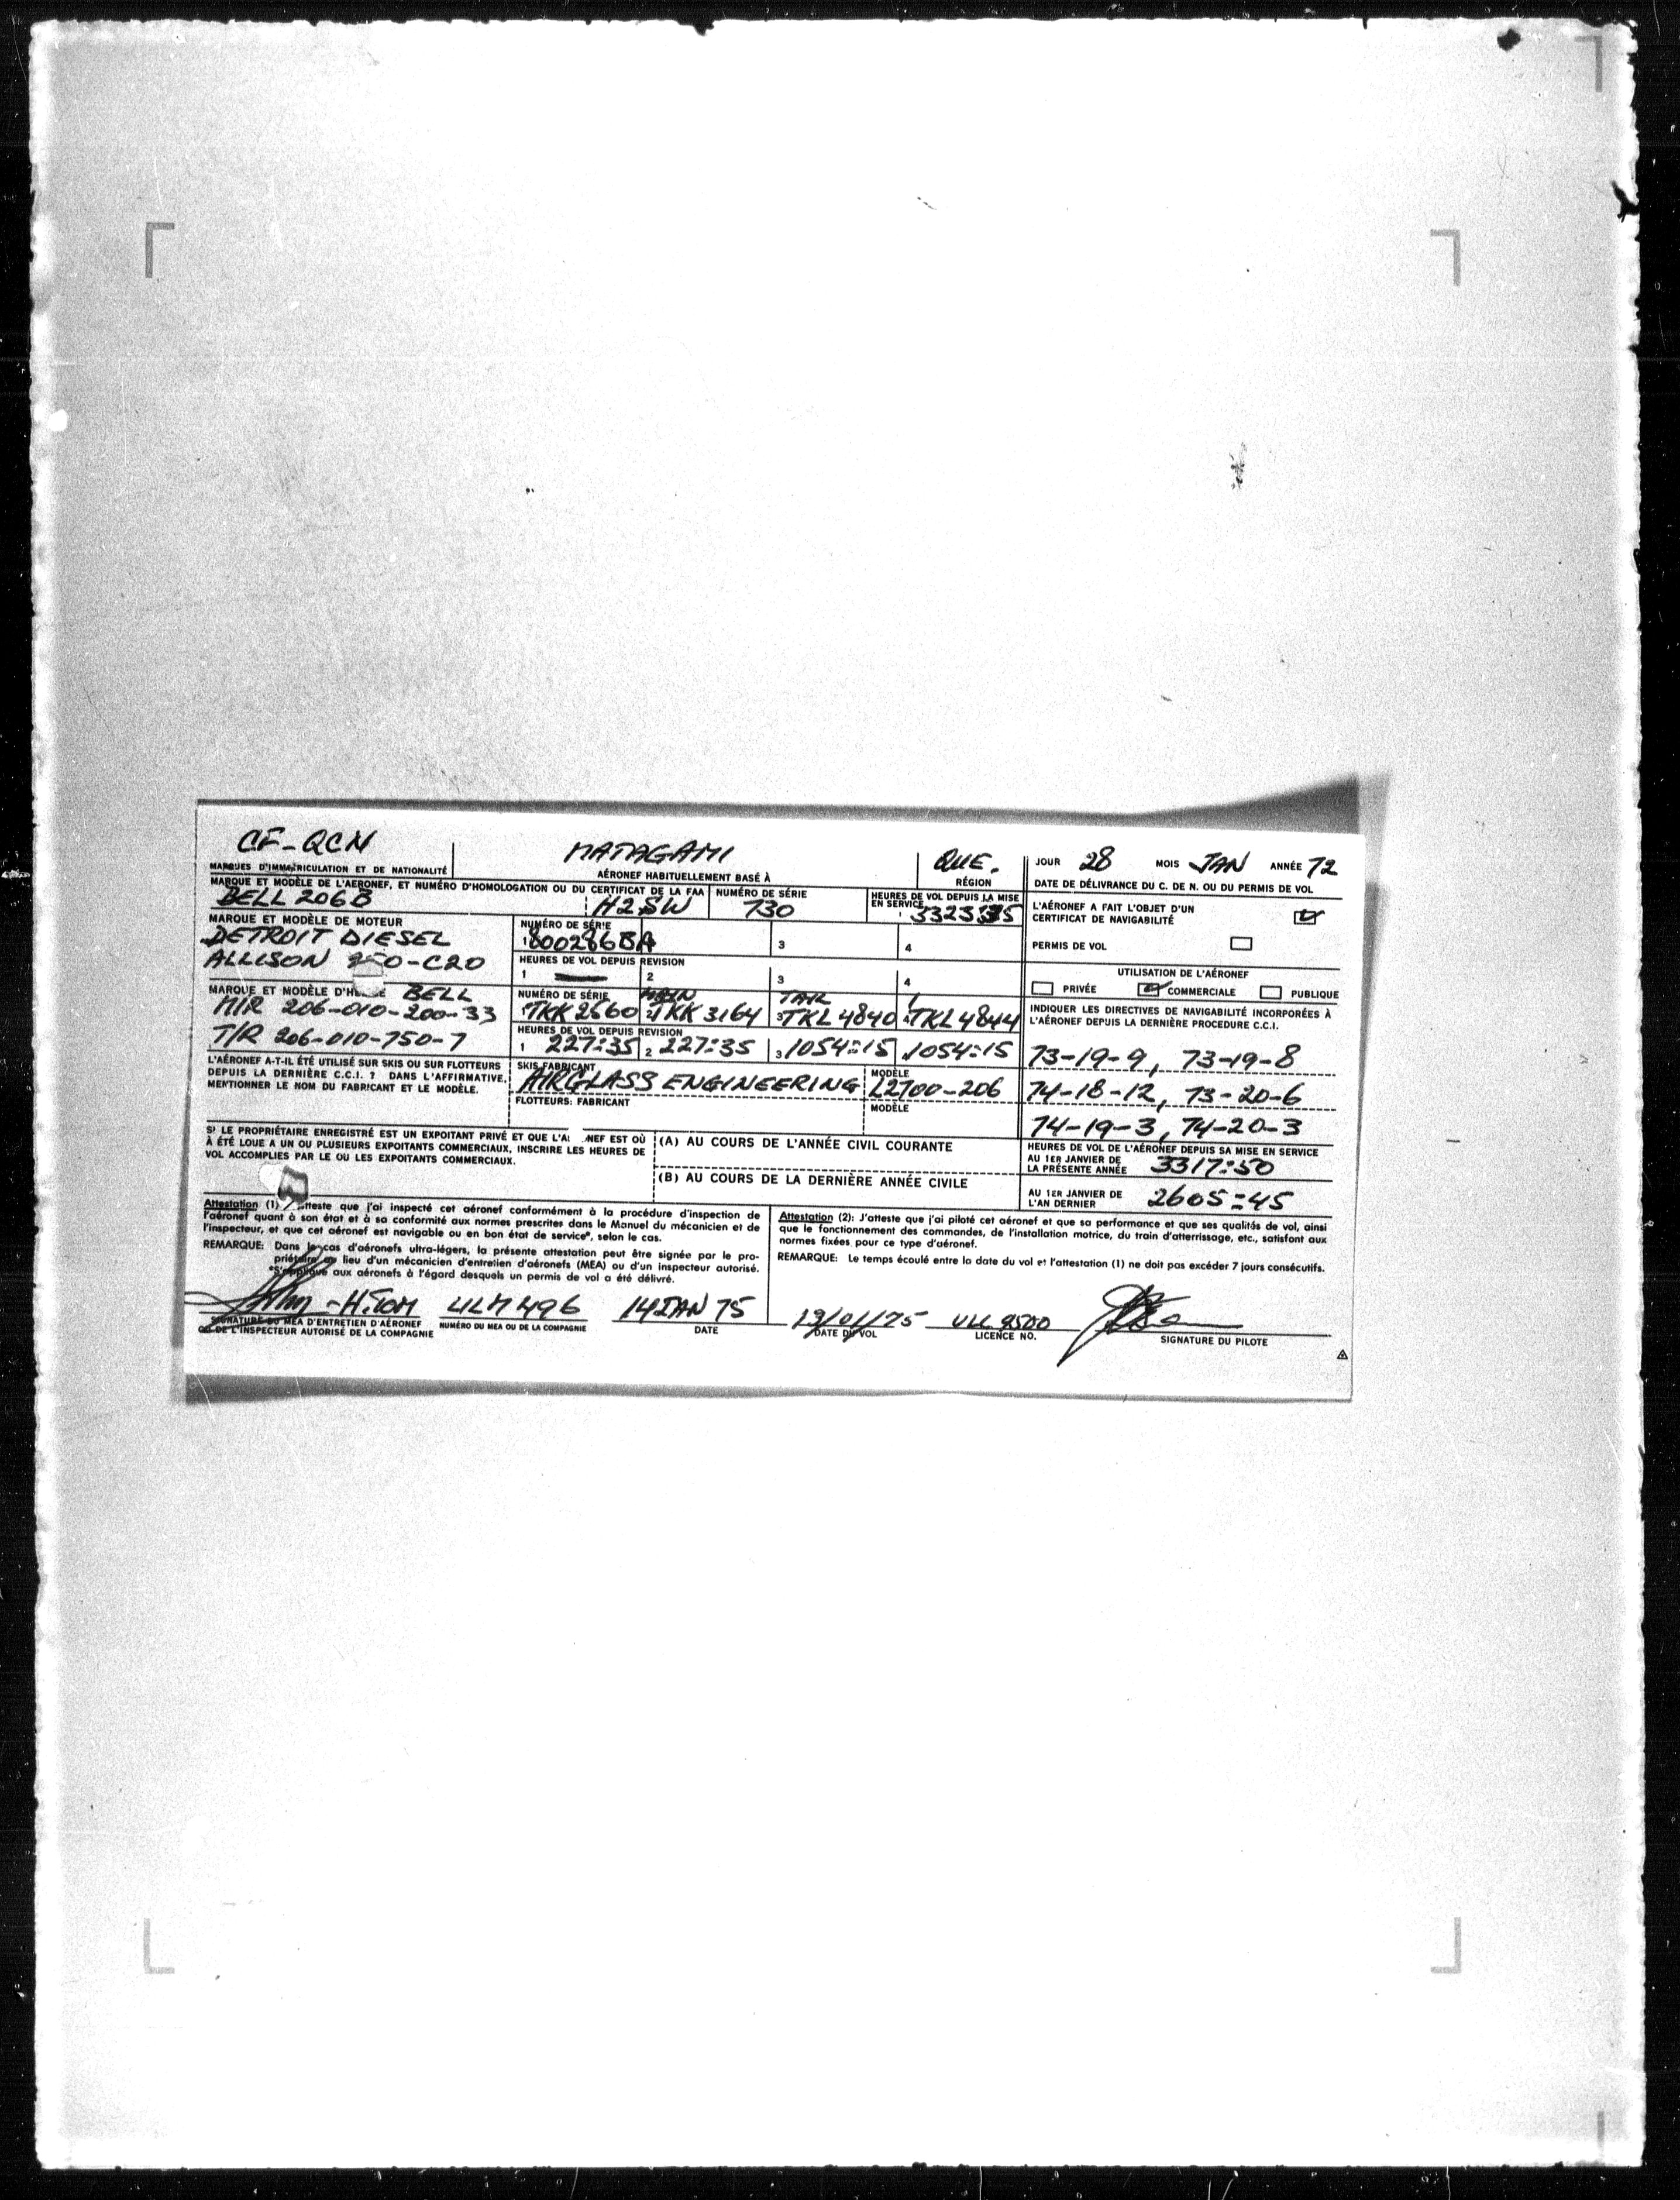 CF-QCN MATAGAMI QUE. JOUR 28 MOIS JAN ANNÉE 72
MARQUES D'IMMATRICULATION ET DE NATIONALITÉ AÉRONEF HABITUELLEMENT BASÉ À RÉGION DATE DE DÉLIVRANCE DU C. DE N. OU DU PERMIS DE VOL
MARQUE ET MODÈLE DE L'AERONEF, ET NUMÉRO D'HOMOLOGATION OU DU CERTIFICAT DE LA FAA NUMÉRO DE SÉRIE HEURES DE VOL DEPUIS LA MISE EN SERVICE
BELL 206B H2SW 730
L'AÉRONEF A FAIT L'OBJET D'UN
CERTIFICAT DE NAVIGABILITÉ
PERMIS DE VOL
UTILISATION DE L'AÉRONEF
PRIVÉE COMMERCIALE PUBLIQUE
MARQUE ET MODÈLE DE MOTEUR NUMÉRO DE SÉRIE
DETROIT DIESEL 1 800286BA 3 4
ALLISON -C20 HEURES DE VOL DEPUIS REVISION
1 2 3 4
MARQUE ET MODÈLE BELL NUMÉRO DE SÉRIE MAIN TAIL
M/R 206-010-200-33 1 TKK 2560 2 TKK 3164 3 TKL 4840 4 TKL 4844
T/R 206-010-750-7 HEURES DE VOL DEPUIS REVISION
1 227:35 2 227:35 3 1054:15 1054:15
INDIQUER LES DIRECTIVES DE NAVIGABILITÉ INCORPORÉES À
L'AÉRONEF DEPUIS LA DERNIÈRE PROCEDURE C.C.I.
73-19-9, 73-19-8
74-18-12, 73-20-6
74-19-3, 74-20-3
L'AÉRONEF A-T-IL ÉTÉ UTILISÉ SUR SKIS OU SUR FLOTTEURS
DEPUIS LA DERNIÈRE C.C.I. ? DANS L'AFFIRMATIVE,
MENTIONNER LE NOM DU FABRICANT ET LE MODÈLE.
SKIS FABRICANT MODÈLE
AIRGLASS ENGINEERING L2700-206
FLOTTEURS: FABRICANT MODÈLE
SI LE PROPRIÉTAIRE ENREGISTRÉ EST UN EXPOITANT PRIVÉ ET QUE EST OÙ
À ÉTÉ LOUE A UN OU PLUSIEURS EXPOITANTS COMMERCIAUX, INSCRIRE LES HEURES DE
VOL ACCOMPLIES PAR LE OU LES EXPOITANTS COMMERCIAUX.
(A) AU COURS DE L'ANNÉE CIVIL COURANTE
(B) AU COURS DE LA DERNIÈRE ANNÉE CIVILE
HEURES DE VOL DE L'AÉRONEF DEPUIS SA MISE EN SERVICE
AU 1ER JANVIER DE
LA PRÉSENTE ANNÉE 3317:50
AU 1ER JANVIER DE
L'AN DERNIER 2605:45
Attestation (1) que j'ai inspecté cet aéronef conformément à la procédure d'inspection de
l'aéronef quant à son état et à sa conformité aux normes prescrites dans le Manuel du mécanicien et de
l'inspecteur, et que cet aéronef est navigable ou en bon état de service*, selon le cas.
REMARQUE: Dans le cas d'aéronefs ultra-légers, la présente attestation peut être signée par le pro-
priétaire au lieu d'un mécanicien d'entretien d'aéronefs (MEA) ou d'un inspecteur autorisé.
*S'applique aux aéronefs à l'égard desquels un permis de vol a été délivré.
Attestation (2): J'atteste que j'ai piloté cet aéronef et que sa performance et que ses qualités de vol, ainsi
que le fonctionnement des commandes, de l'installation motrice, du train d'atterrissage, etc., satisfont aux
normes fixées pour ce type d'aéronef.
REMARQUE: Le temps écoulé entre la date du vol et l'attestation (1) ne doit pas excéder 7 jours consécutifs.
H.TOM ULM 496 14 JAN 75 13/01/75 ULL 9500
SIGNATURE DU MEA D'ENTRETIEN D'AÉRONEF NUMÉRO DU MEA OU DE LA COMPAGNIE DATE DATE DU VOL LICENCE NO. SIGNATURE DU PILOTE
OU DE L'INSPECTEUR AUTORISÉ DE LA COMPAGNIE